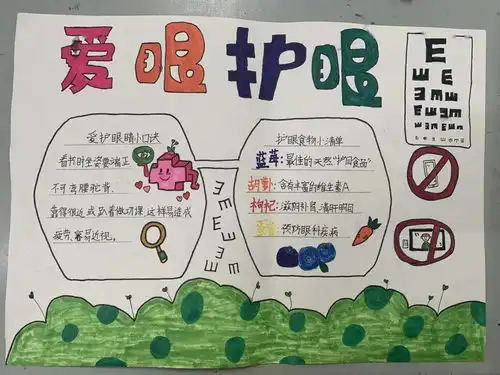 爱眼护眼
爱护眼睛小口诀
看书时坐姿要端正
不可弯腰驼背
靠得很近或趴着做功课,这样易造成
疲劳,容易近视。
护眼食物小清单
蓝莓:最佳的天然“护目食品”
胡萝卜:含有丰富的维生素A
枸杞:滋阴补肾,清肝明目
预防眼科疾病
E
E E E
E E E E